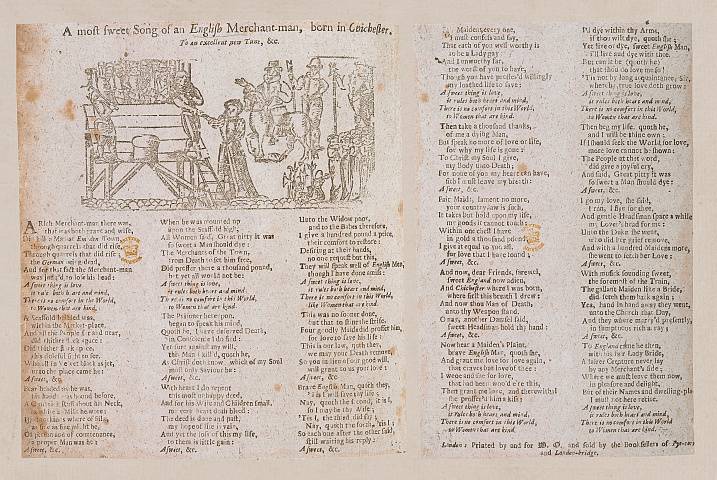 A most sweet Song of an English Merchant-man, born in Chichester.
To an excellent new Tune, &c.
A Rich Merchant-man there was,
that was both grave and wise,
Did kill a Man at Town,
through quarrels that did rise.
Through quarrels that did rise,
the German being dead,
And for that fact the Merchant-man
was judg'd to lose his head:
A sweet thing is love,
it rules both heart and mind,
There is no comfort in the World,
to Women that are kind.
A Scaffold builded was,
within the Market-place,
And all the People far and near,
did thither flock apace:
Did thither flock apace,
his doleful sight to see,
Who all in Velvet black as jet,
unto the place came he:
A sweet, &c.
Bare headed as he was,
his hands bound before,
A Cambrick Ruff about his Neck,
as white as Milk he wore:
His Stockings were of silk,
as fine as fine might be,
Of person and of countenance,
a proper Man was he:
A sweet, &c.
When he was mounted up
upon the Scaffold high,
All Women said, Great pitty it was
so sweet a Man should dye:
The Merchants of the Town,
from Death to set him free,
Did proffer there a thousand pound,
but yet all would not be:
A sweet thing is love,
it rules both heart and mind,
There is no comfort in this World,
to Women that are kind.
The Prisoner hereupon,
began to speak his mind,
Quoth he, I have deserved Death,
in Conscience I do find:
Yet sure against my will,
this Man I kill'd, quoth he,
As Christ doth know, which of my Soul
must only Saviour be:
A sweet, &c.
With heart I do repent
this most unhappy deed,
And for his Wife and Children small,
my very heart doth bleed:
The deed is done and past,
my hope of life is vain,
And yet the loss of this my life,
to them is little gain:
A sweet, &c.
Unto the Widow poor,
and to the Babes therefore,
I give a hundred pound a piece,
their comfort to restore:
Desiring at their hands,
no one request but this,
They will speak well of English Men,
though I have done amiss:
A sweet thing is love,
it rules both heart and mind,
There is no comfort in this World,
like Women that are kind.
This was no sooner done,
but that to stint the strife,
Four goodly Maidens did proffer him,
for love to save his life:
This is our law, quoth they,
we may your Death remove,
So you in lieu of our good will,
will grant to us your love:
A sweet, &c.
Brave English Man, quoth they,
'tis I will save thy life;
Nay, quoth the second, it is I,
so I may be thy Wife;
'Tis I, the third did say;
Nay, quoth the fourth, 'tis I;
So each one after the other said,
still waiting his reply:
A sweet, &c.
Fair Maidens every one,
I must confess and say,
That each of you well worthy is
to be a Lady gay:
And I unworthy far,
the worst of you to have,
Though you have proffer'd willingly
my loathed life to save:
A sweet thing is love,
it rules both heart and mind,
There is no comfort in this World,
to Women that are kind.
Then take a thousand thanks,
of me a dying Man,
But speak no more of love or life,
for why my life is gone:
To Christ my Soul I give,
my Body unto Death;
For none of you my heart can have,
sith I must leave my breath:
A sweet, &c.
Fair Maids, lament no more,
your country law is such,
It takes but hold upon my life,
my goods it cannot touch:
Within one chest I have
in gold a thousand pound,
I give it equal to you all,
for love that I have found:
A sweet, &c.
And now, dear Friends, farewel,
sweet England now adieu,
And Chichester where I was born,
where first this breath I drew:
And now thou Man of Death,
unto thy Weapon stand,
O nay, another Damsel said,
sweet Headsman hold thy hand:
A sweet, &c.
Now hear a Maiden's Plaint,
brave English Man, quoth she,
And grant me love for love again,
that craves but love of thee:
I wooe and sue for love,
that had been woo'd ere this,
Then grant me love, and therewithal
she proffer'd him a kiss:
A sweet thing is love,
it rules both heart and mind,
There is no comfort in this World,
to Women that are kind.
I'd dye within thy Arms,
if thou wilt dye, quoth she;
Yet live or dye, sweet English Man,
I'll live and dye with thee.
But can it be (quoth he)
that thou do love me so?
'Tis not by long acquaintance, Sir,
whereby true love doth grow:
A sweet thing is love,
it rules both heart and mind,
There is no comfort in this World,
to Women that are kind.
Then beg my life, quoth he,
and I will be thine own;
If I should seek the World for love,
more love cannot be shown:
The People at this word,
did give a joyful cry,
And said, Great pitty it was
so sweet a Man should dye:
A sweet, &c.
I go my love, she said,
I run, I flye for thee,
And gentle Headsman spare a while
my Lover's head for me:
Unto the Duke she went,
who did her grief remove,
And with a hundred Maidens more,
she went to fetch her Love:
A sweet, &c.
With musick sounding sweet,
the foremost of the Train,
The gallant Maiden like a Bride,
did fetch them back again;
Yea, hand in hand away they went,
unto the Church that Day,
And they were marry'd presently,
in sumptuous rich array:
A sweet, &c.
To England came he then,
with his fair Lady Bride,
A fairer Creature never lay
by any Merchant's side;
Where we must leave them now,
in pleasure and delight,
But of their Names and dwelling-place
I must not here recite.
A sweet thing is love,
it rules both heart and mind,
There is no comfort in this World
to Women that are kind.
London: Printed by and for W. O. and sold by the Booksellers of Pye-corner
and London-bridge.